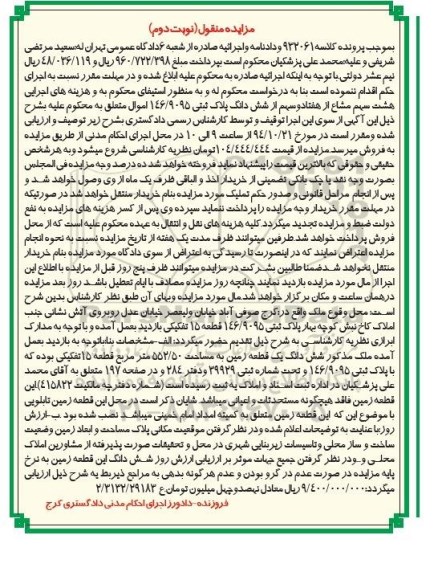 مزایده منقول(نوبت دوم)
بموجب پرونده کلاسه ۹۳۲۰۶۱ ودادنامه واجرائیه صادره از شعبه ۶دادگاه عمومی تهران له سعید مرتضی
شریفی و علیه محمد علی پزشکیان محکوم است بپرداخت مبلغ ۹۶۰/۷۲۲/۳۹۸ ریال و ۴۸/۰۳۶/۱۱۹ ریال
نیم عشر دولتی با توجه به اینکه اجرائیه صادره به محکوم علیه ابلاغ شده و در مهلت مقرر نسبت به اجرای
حکم اقدام ننموده است بنا به درخواست محکوم له و به منظور استیفای محکوم به و هزینه های اجرایی
هشت سهم مشاع از هفتادوسهم از شش دانگ پلاک ثبتی ۱۴۶/۹۰۹۵ اموال متعلق به محکوم علیه بشرح
ذیل این آگهی از سوی این اجرا توقیف و توسط کارشناس رسمی دادگستری بشرح زیر توصیف و ارزیابی
شده ومقرر است در مورخ ۹۴/۱۰/۲۱ از ساعت ۹ الی ۱۰ در محل اجرای احکام مدنی از طریق مزایده
به فروش میرسد مزایده از قیمت ۱۰۴/۴۴۴/۴۴۴تومان نظریه کارشناسی شروع میشود و به هرشخص
حقیقی و حقوقی که بالاترین قیمت را پیشنهاد نماید فروخته خواهد شد ده درصد وجه مزایده فی المجلس
بصورت وجه نقد یا چک بانکی تضمینی از خریدار اخذ و الباقی ظرف یک ماه از وی وصول خواهد شد و
پس از انجام مراحل قانونی و صدور حکم تملیک مورد مزایده بنام خریدار منتقل خواهد شد در صورتیکه
در مهلت مقرر خریدار وجه مزایده را پرداخت ننماید سپرده وی پس از کسر هزینه های مزایده به نفع
دولت ضبط و مزایده تجدید میگردد کلیه هزینه های نقل و انتقال به عهده محکوم علیه است که از محل
فروش پرداخت خواهد شد.طرفین میتوانند ظرف مدت یک هفته از تاریخ مزایده نسبت به نحوه انجام
مزایده اعتراض نمایند که در اینصورت تا رسیدگی به اعتراض از سوی دادگاه مورد مزایده بنام خریدار
منتقل نخواهد شدضمنا طالبین شرکت در مزایده میتوانند ظرف پنج روز قبل از مزایده با اطلاع این
اجرا از مال مورد مزایده بازدید نمایند چنانچه روز مزایده مصادف با ایام تعطیل باشد روز بعد مزایده
درهمان ساعت و مکان برگزار خواهد شد.مال مورد مزایده وبهای آن طبق نظر کارشناس بدین شرح
است: محل وقوع ملک واقع در:کرج صوفی آباد خیابان ولیعصر خیابان عدل روبروی آتش نشانی جنب
املاک کاخ نبش کوچه بهار پلاک ثبتی ۱۴۶/۹۰۹۵ قطعه ۱۵ تفکیکی بازدید بعمل آمده و با توجه به مدارک
ابرازی نظریه کارشناسی به شرح ذیل تقدیم حضور میگردد:الف-مشخصات بناباتوجه به بازدید بعمل
آمده ملک مذکور شش دانگ یک قطعه زمین به مساحت ۵۵۲/۵۰ متر مربع قطعه ۱۵تفکیکی بوده که
با پلاک ثبتی ۱۴۶/۹۰۹۵ و تحت شماره ثبتی ۳۹۹۲۹ ودفتر ۲۸۴ و در صفحه ۱۹۷ متعلق به آقای محمد
علی پزشکیان در اداره ثبت اسناد و املاک به ثبت رسیده است (شماره دفترچه مالکیت ۴۱۵۸۲۲)این
قطعه زمین فاقد هیچگونه مستحدثات و اعیانی میباشد شایان ذکر است در محل این قطعه زمین تابلویی
با موضوع این که این قطعه زمین متعلق به کمیته امداد امام خمینی میباشد نصب شده بود ب-ارزش
روزباعنایت به توضیحات اعلام شده ودر نظر گرفتن موقعیت مکانی پلاک مساحت و ابعاد زمین وضعیت
ساخت و ساز محلی وتاسیسات زیربنایی شهری در محل و تحقیقات صورت پذیرفته از مشاورین املاک
محلی ودر نظر گرفتن جمیع جهات موثر بر ارزیابی ارزش روز شش دانگ این قطعه زمین به نرخ
پایه مزایده در صورت عدم در گرو بودن و عدم هرگونه بدهی به مراجع ذیربط به شرح ذیل ارزیابی
میگردد:۹/۴۰۰/۰۰۰/۰۰۰ ریال معادل نهصدوچهل میلیون تومان ع ۲/۳۱۳۲/۲۹۱۸۳
فروزنده-دادورز اجرای احکام مدنی دادگستری کرج